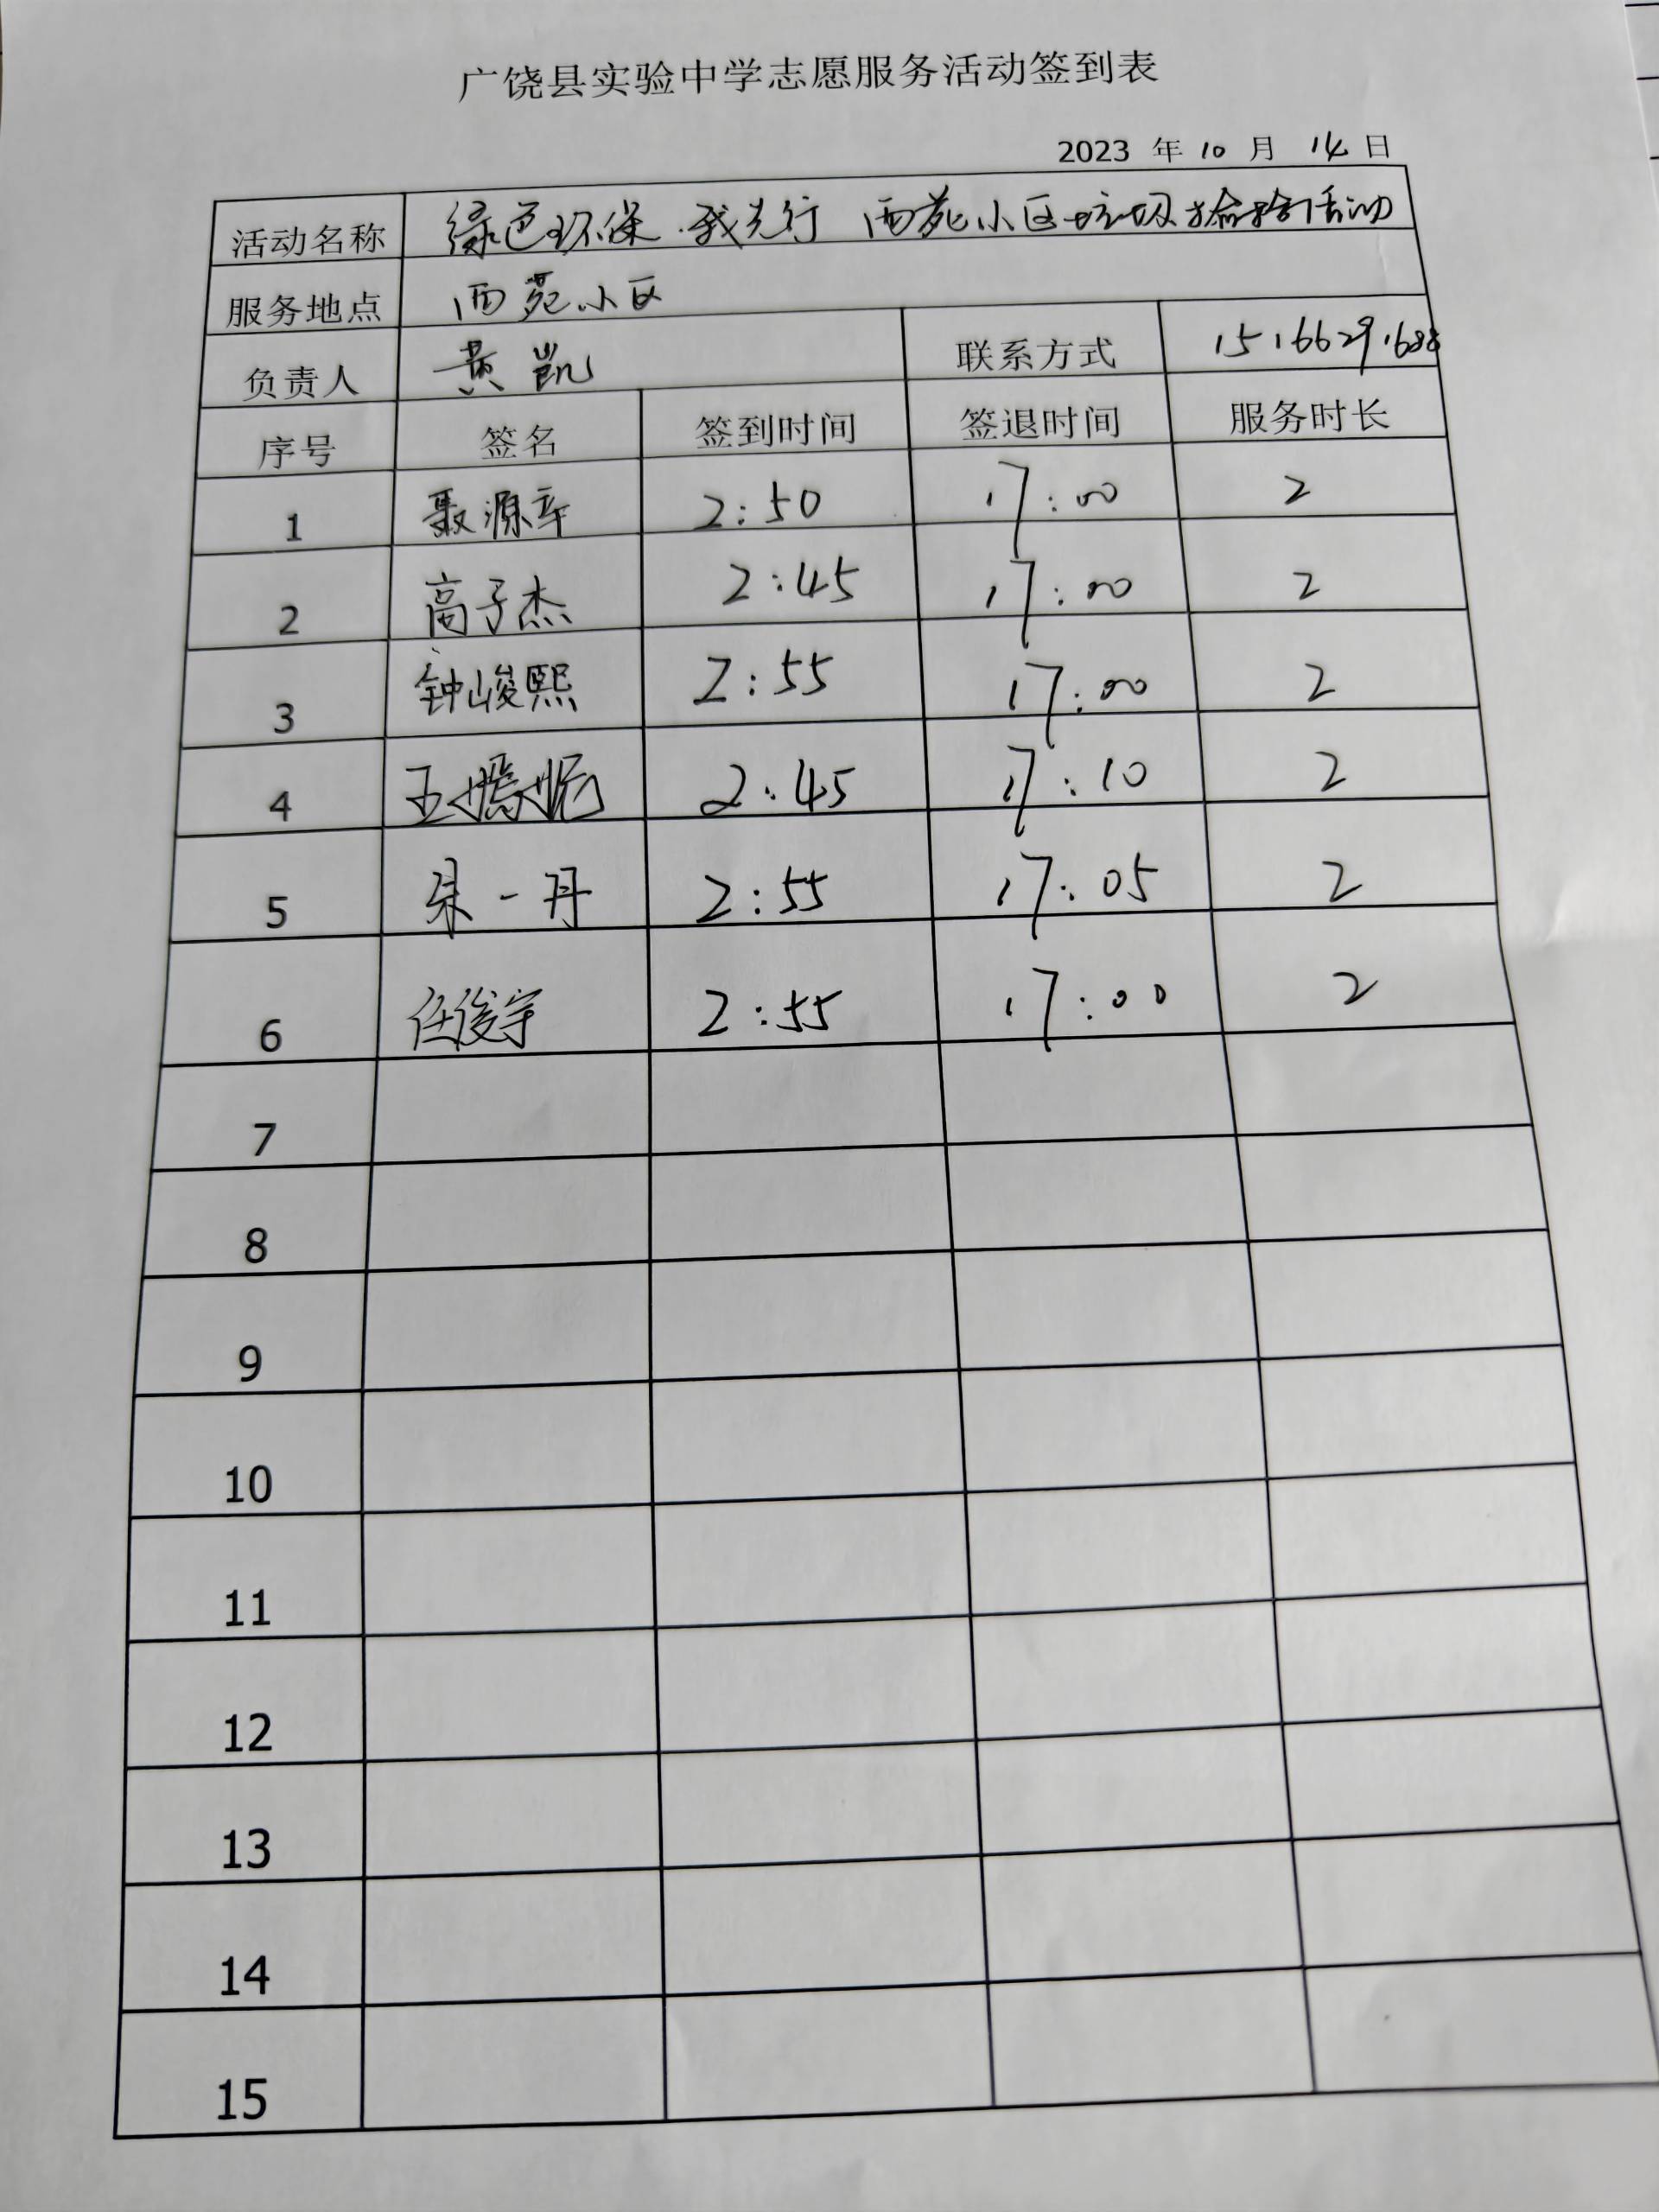 广饶县实验中学志愿服务活动签到表
2023 年 10 月 14 日
活动名称 绿色环保.我先行 西苑小区垃圾捡拾活动
服务地点 西苑小区
负责人 黄凯 联系方式 15166291688
序号 签名 签到时间 签退时间 服务时长
1 聂源辛 2:50 17:00 2
2 高子杰 2:45 17:00 2
3 钟峻熙 2:55 17:00 2
4 王嫣妮 2:45 17:10 2
5 朱一丹 2:55 17:05 2
6 任俊宇 2:55 17:00 2
7
8
9
10
11
12
13
14
15